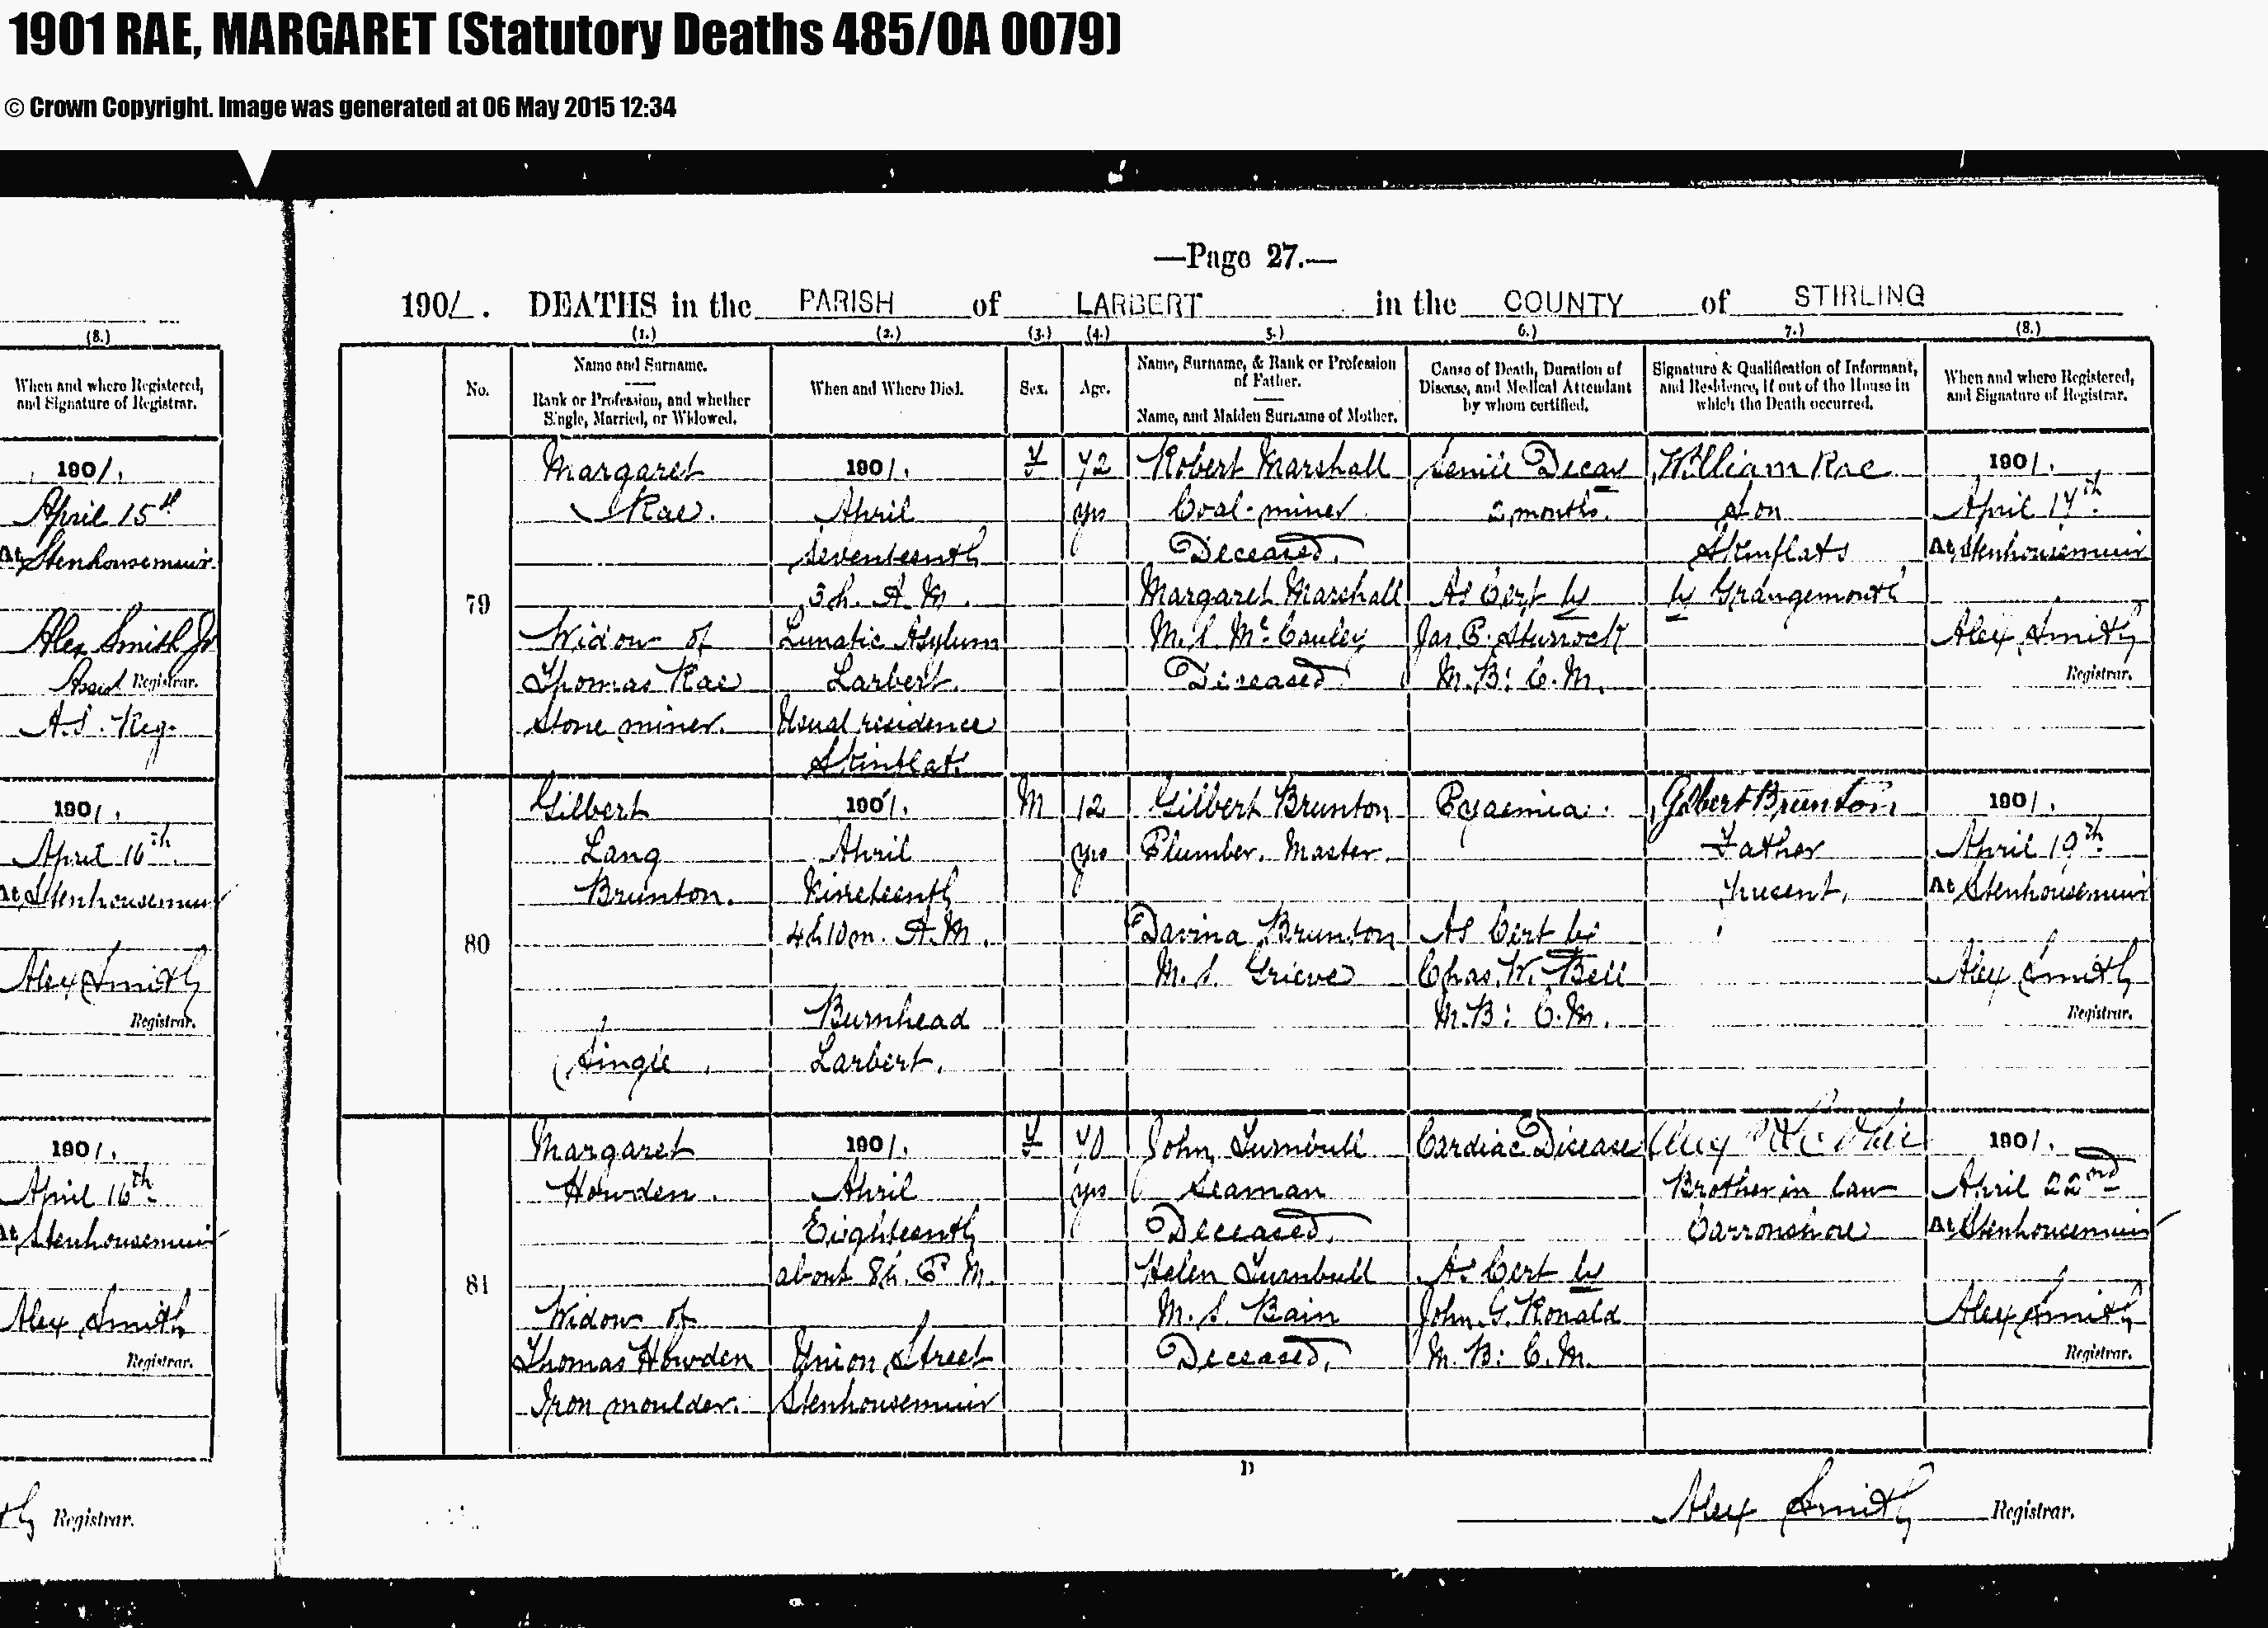 1901 RAE, MARGARET (Statutory Deaths 485/0A 0079)
© Crown Copyright. Image was generated at 06 May 2015 12:34
(8.)
When and where Registered,
and Signature of Registrar.
1901.
April 15th
At Stenhousemuir
Alex Smith Jr
Assist Registrar.
A.S. Reg.
1901.
April 16th
At Stenhousemuir
Alex Smith
Registrar.
1901.
April 16th
At Stenhousemuir
Alex Smith
Registrar.
Registrar.
—Page 27.—
1901. DEATHS in the PARISH of LARBERT in the COUNTY of STIRLING
(1.) (2.) (3.) (4.) 5.) 6.) 7.) (8.)
No.
Name and Surname.
Rank or Profession, and whether
Single, Married, or Widowed.
When and Where Died.
Sex.
Age.
Name, Surname, & Rank or Profession
of Father.
Name, and Maiden Surname of Mother.
Cause of Death, Duration of
Disease, and Medical Attendant
by whom certified.
Signature & Qualification of Informant,
and Residence, if out of the House in
which the Death occurred.
When and where Registered,
and Signature of Registrar.
79
Margaret
Rae.
Widow of
Thomas Rae
Stone miner.
1901.
April
Seventeenth
3h. A.M.
Lunatic Asylum
Larbert.
Usual residence
Skinflats
F
72
yrs
Robert Marshall
Coal-miner
Deceased.
Margaret Marshall
M.S. McCauley
Deceased
Senile Decay
2 months.
As Cert by
Jas. P. Sturrock
M.B: C.M.
William Rae
Son
Skinflats
by Grangemouth
1901.
April 17th
At Stenhousemuir
Alex Smith
Registrar.
80
Gilbert
Lang
Brunton.
Single.
1901.
April
Nineteenth
4h 10m. A.M.
Burnhead
Larbert.
M
12
yrs
Gilbert Brunton
Plumber. Master.
Davina Brunton
M.S. Grieve
Pyaemia.
As Cert by
Chas. W. Bell
M.B: C.M.
Gilbert Brunton
Father
present.
1901.
April 19th
At Stenhousemuir
Alex Smith
Registrar.
81
Margaret
Howden.
Widow of
Thomas Howden
Iron moulder.
1901.
April
Eighteenth
about 8h. P.M.
Union Street
Stenhousemuir
F
70
yrs
John Turnbull
Seaman
Deceased.
Helen Turnbull
M.S. Bain
Deceased.
Cardiac Disease
As Cert by
John G. Ronald
M.B: C.M.
Brother in law
Carronshore
1901.
April 22nd
At Stenhousemuir
Alex Smith
Registrar.
D
Alex Smith Registrar.